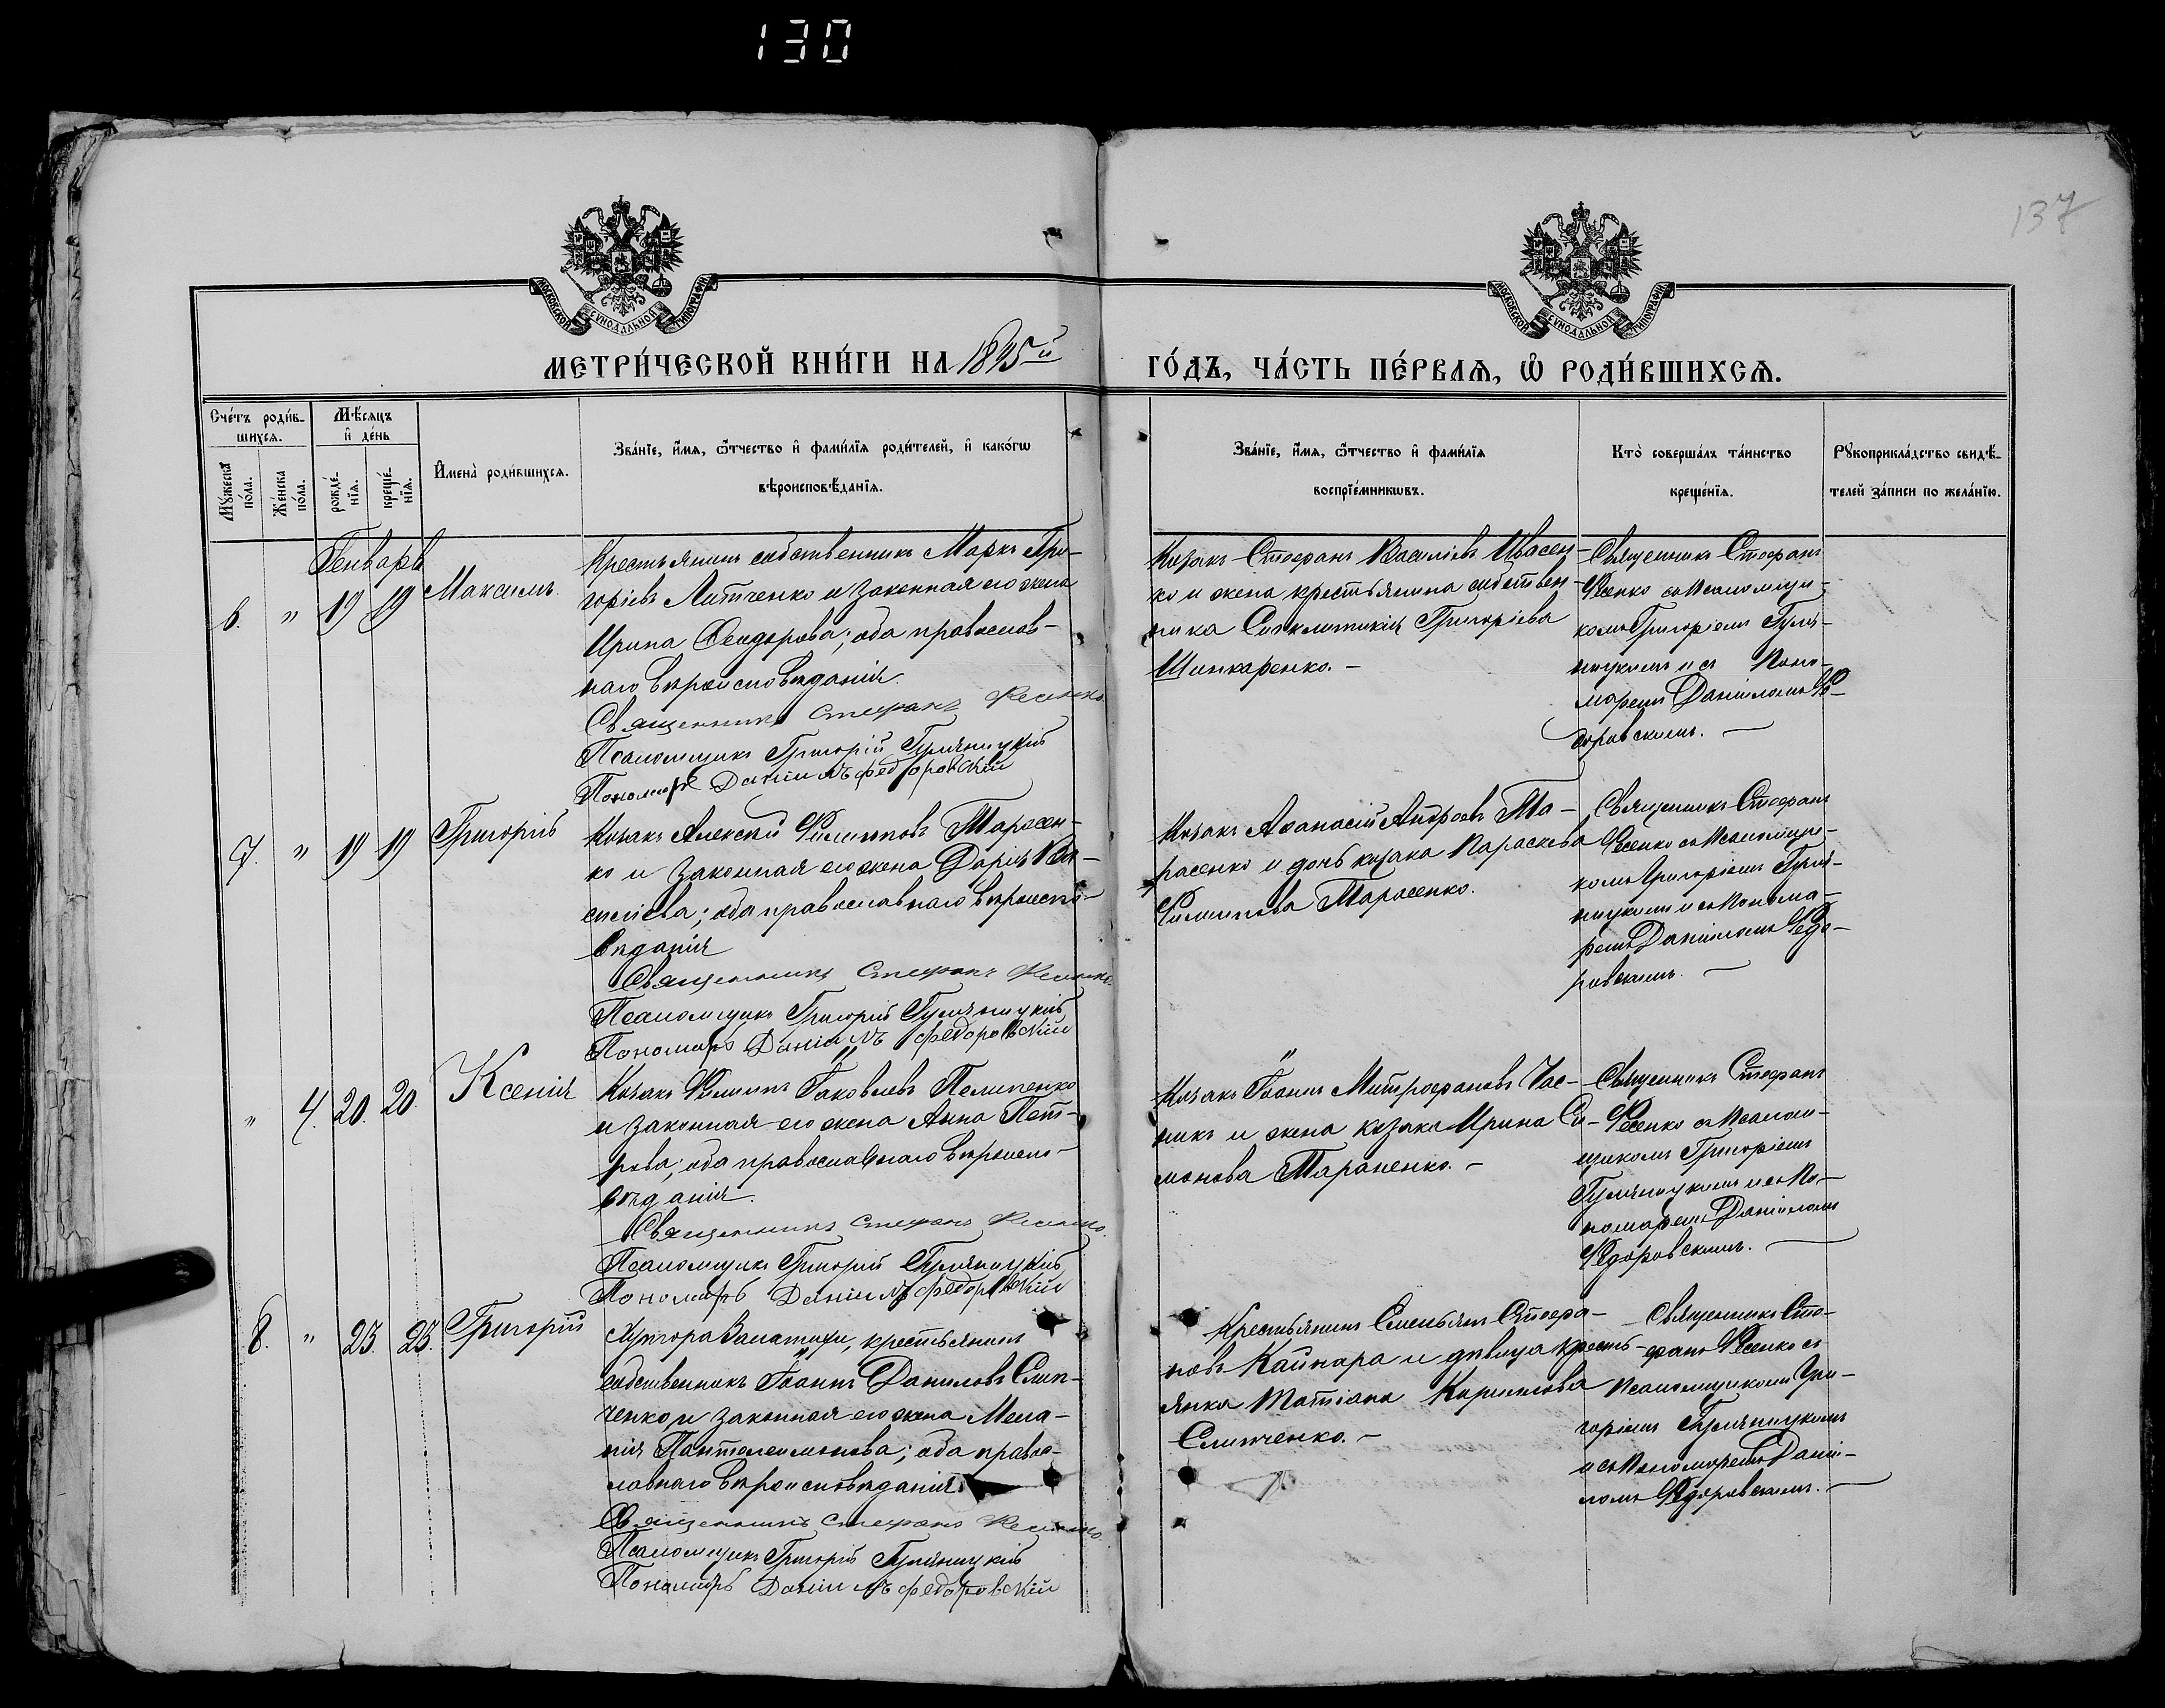 130
137
МОСКОВСКОЙ СѴНОДАЛЬНОЙ ТИПОГРАФІИ
МОСКОВСКОЙ СѴНОДАЛЬНОЙ ТИПОГРАФІИ
МЕТРИ́ЧЕСКОЙ КНИ́ГИ НА 1895й
ГО́ДЪ, ЧА́СТЬ ПЕ́РВАѦ, Ѡ҆ РОДИ́ВШИХСѦ.
Сче́тъ роди́в-
шихсѧ.
Мꙋ́жеска по́ла.
Же́нска по́ла.
Мѣ́сѧцъ
и҆ де́нь
рожде́-
нїѧ.
креще́-
нїѧ.
И҆мена̀ роди́вшихсѧ.
Зва́нїе, и҆́мѧ, ѻ҆́тчество и҆ фамѝлїѧ роди́телей, и҆ како́гѡ
вѣроисповѣ́данїѧ.
Зва́нїе, и҆́мѧ, ѻ҆́тчество и҆ фами́лїѧ
воспрїе́мникѡвъ.
Кто̀ соверша́лъ та́инство
креще́нїѧ.
Рꙋкоприкла́дство свидѣ́-
телей за́писи по жела́нїю.
Генварь
6. " 19 19
Максимъ
Крестьянинъ собственникъ Маркъ Гри-
горіевъ Литвченко и законная его жена
Ирина Ѳеодорова; оба православ-
наго вѣроисповѣданія.
Священникъ Стефанъ Фесенко
Псаломщикъ Григорій Гуляницкій
Пономарь Даніилъ Федоровскій
Козакъ Стефанъ Василіевъ Ивасен-
ко и жена крестьянина собствен-
ника Синклитикія Григоріева
Шинкаренко. —
Священникъ Стефанъ
Фесенко съ Псаломщи-
комъ Григоріемъ Гуля-
ницкимъ и съ Поно-
маремъ Даніиломъ Фе-
доровскимъ. —
7. " 19 19
Григорій
Козакъ Алексѣй Филипповъ Тарасен-
ко и законная его жена Дарія Ва-
силіева; оба православнаго вѣроиспо-
вѣданія
Священникъ Стефанъ Фесенко
Псаломщикъ Григорій Гуляницкій
Пономарь Даніилъ Федоровскій
Козакъ Аѳанасій Андреевъ Та-
расенко и дочь козака Параскева
Филиппова Тарасенко.
Священникъ Стефанъ
Фесенко съ Псаломщи-
комъ Григоріемъ Гуля-
ницкимъ и съ Понома-
ремъ Даніиломъ Федо-
ровскимъ. —
" 4. 20. 20.
Ксенія
Козакъ Филиппъ Іаковлевъ Пелипенко
и законная его жена Анна Пет-
рова; оба православнаго вѣроиспо-
вѣданія.
Священникъ Стефанъ Фесенко
Псаломщикъ Григорій Гуляницкій
Пономарь Даніилъ Федоровскій
Козакъ Іоаннъ Митрофановъ Час-
никъ и жена козака Ирина Си-
монова Тараненко. —
Священникъ Стефанъ
Фесенко съ Псалом-
щикомъ Григоріемъ
Гуляницкимъ и съ По-
номаремъ Даніиломъ
Федоровскимъ. —
8. " 23. 23.
Григорій
Хутора крестьянинъ
собственникъ Іоаннъ Даниловъ Слип-
ченко и законная его жена Мела-
нія Пантелеимонова; оба правос-
лавнаго вѣроисповѣданія
Священникъ Стефанъ Фесенко
Псаломщикъ Григорій Гуляницкій
Пономарь Даніилъ Федоровскій
Крестьянинъ Емельянъ Стефа-
новъ Кайнара и дѣвица кресть-
янка Татіана Кириллова
Слипченко. —
Священникъ Сте-
фанъ Фесенко съ
Псаломщикомъ Гри-
горіемъ Гуляницкимъ
и съ Пономаремъ Дані-
ломъ Федоровскимъ. —